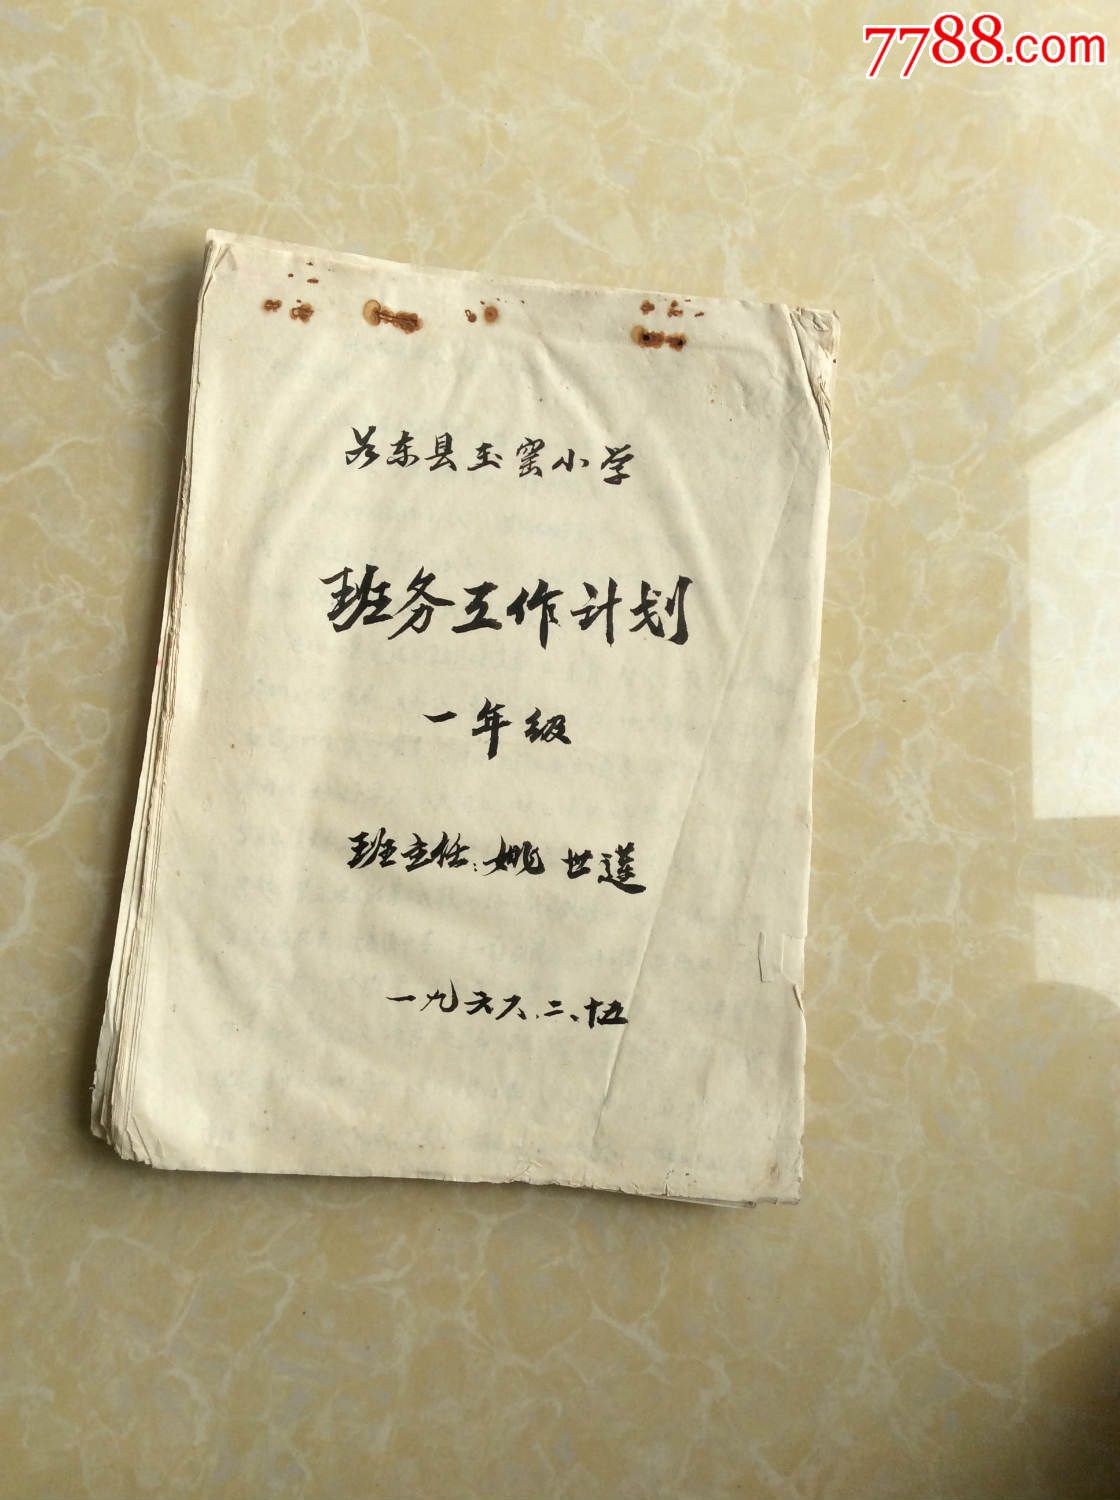 7788.com
岩东县玉窑小学
班务工作计划
一年级
班主任:姚世莲
一九六六.二、十五